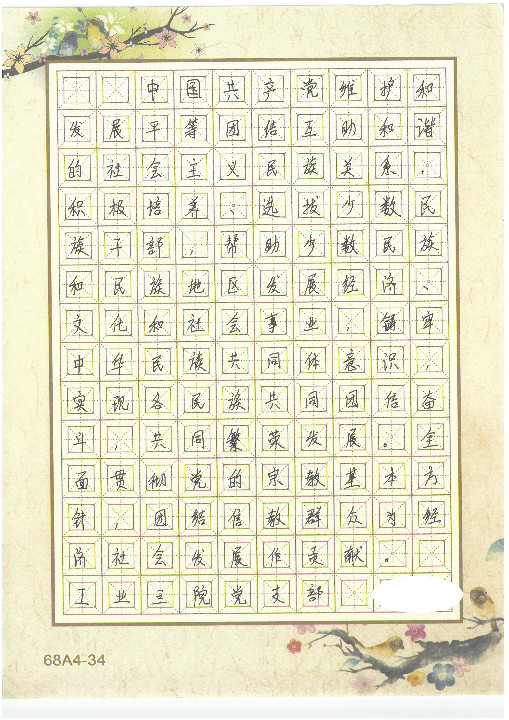 中国共产党维护和
发展平等团结互助和谐
的社会主义民族关系，
积极培养、选拔少数民
族干部，帮助少数民族
和民族地区发展经济、
文化和社会事业，铸牢
中华民族共同体意识，
实现各民族共同团结奋
斗，共同繁荣发展。全
面贯彻党的宗教基本方
针，团结信教群众为经
济社会发展作贡献。
工业三院党支部
68A4-34